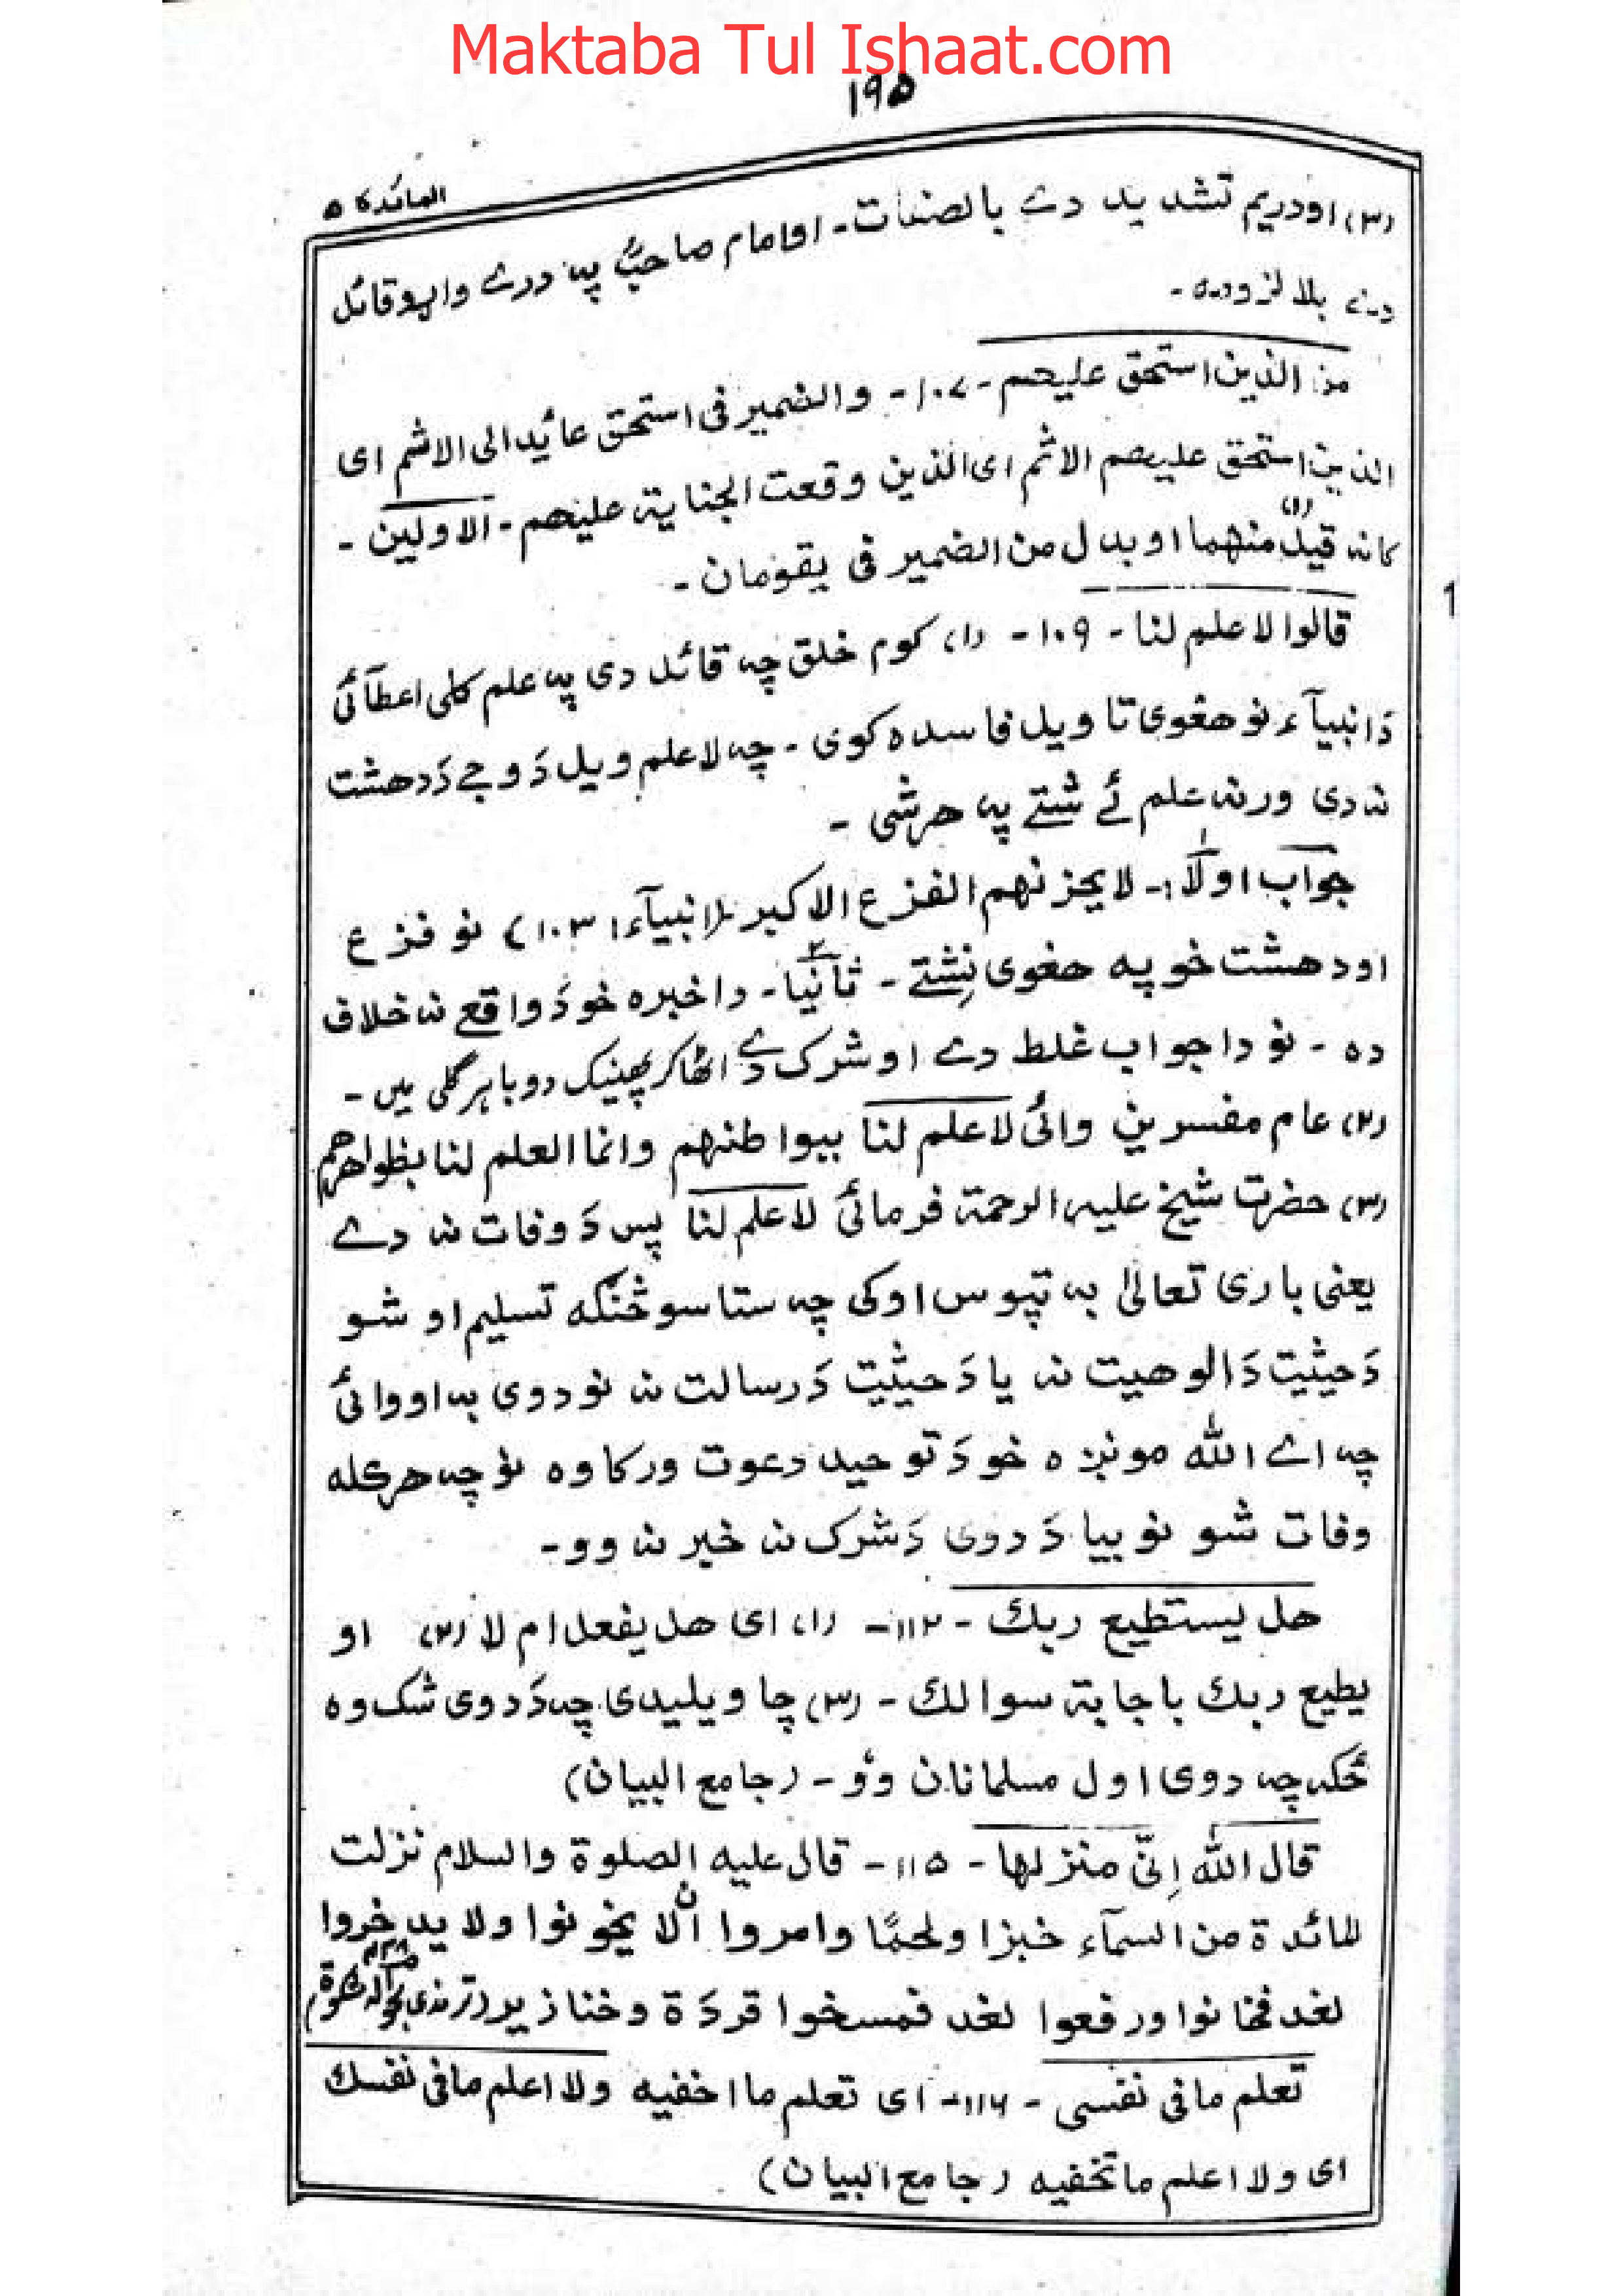 Maktaba Tul Ishaat.com
١٩٥
المائدة ٥
(٣) او دریم تشدید دے بالصفات - او امام صاحبؒ پہ درے وارو قائل
دے بلا لزومہ -
من الذین استحق علیھم - ١٠٧ - والضمیر فی استحق عائد الی الاثم ای
الذین استحق علیھم الاثم ای الذین وقعت الجنایۃ علیھم - الاولین -
کانہ قیل (١) منھما او بدل من الضمیر فی یقومان -
قالوا لا علم لنا - ١٠٩ - (١) کوم خلق چہ قائل دی پہ علم کلی اعطآئی
دَ انبیآء نو ھغوی تاویل فاسدہ کوی - چہ لاعلم ویل دَ وجے دَ دھشت
نہ دی ورنہ علم ئے شتے پہ ھرشی -
جواب اولًا ١- لا یحزنھم الفزع الاکبر (انبیآء ١٠٣) نو فزع
او دھشت خو پہ ھغوی نِشتے - ثانیًا ٢ - دا خبرہ خو دَ واقع نہ خلاف
دہ - نو دا جواب غلط دے او شرک دے اٹھا کر پھینک دو باہر گلی میں -
(٢) عام مفسرین وائی لا علم لنا ببواطنھم وانما العلم لنا بظواھرھم
(٣) حضرت شیخ علیہ الرحمۃ فرمائی لا علم لنا پس دَ وفات نہ دے
یعنی باری تعالیٰ بہ تپوس اوکی چہ ستاسو څنګہ تسلیم او شو
دَ حیثیت دَ الوھیت نہ یا دَ حیثیت دَ رسالت نہ نو دوی بہ اووائی
چہ اے اللہ مونږہ خو دَ توحید دعوت ورکاوہ نو چہ ھرکلہ
وفات شو نو بیا دَ دوی دَ شرک نہ خبر نہ وو -
ھل یستطیع ربك - ١١٢ - (١) ای ھل یفعل ام لا (٢) او
یطیع ربك باجابۃ سوالك - (٣) چا ویلیدی چہ دَ دوی شک وہ
ځکہ چہ دوی اول مسلمانان وُو - (جامع البیان)
قال اللہ اِنّی منزلھا - ١١٥ - قال علیہ الصلوۃ والسلام نزلت
المائدۃ من السمآء خبزا ولحمًا وامروا ان لا یخونوا ولا یدخروا
لغد فخانوا ورفعوا لغد فمسخوا قردَۃ وخنازیر (ترمذی بحوالہ مشکوۃ
تعلم ما فی نفسی - ١١٦ - ای تعلم ما اخفیہ ولا اعلم ما فی نفسك
ای ولا اعلم ما تخفیہ (جامع البیان)
1